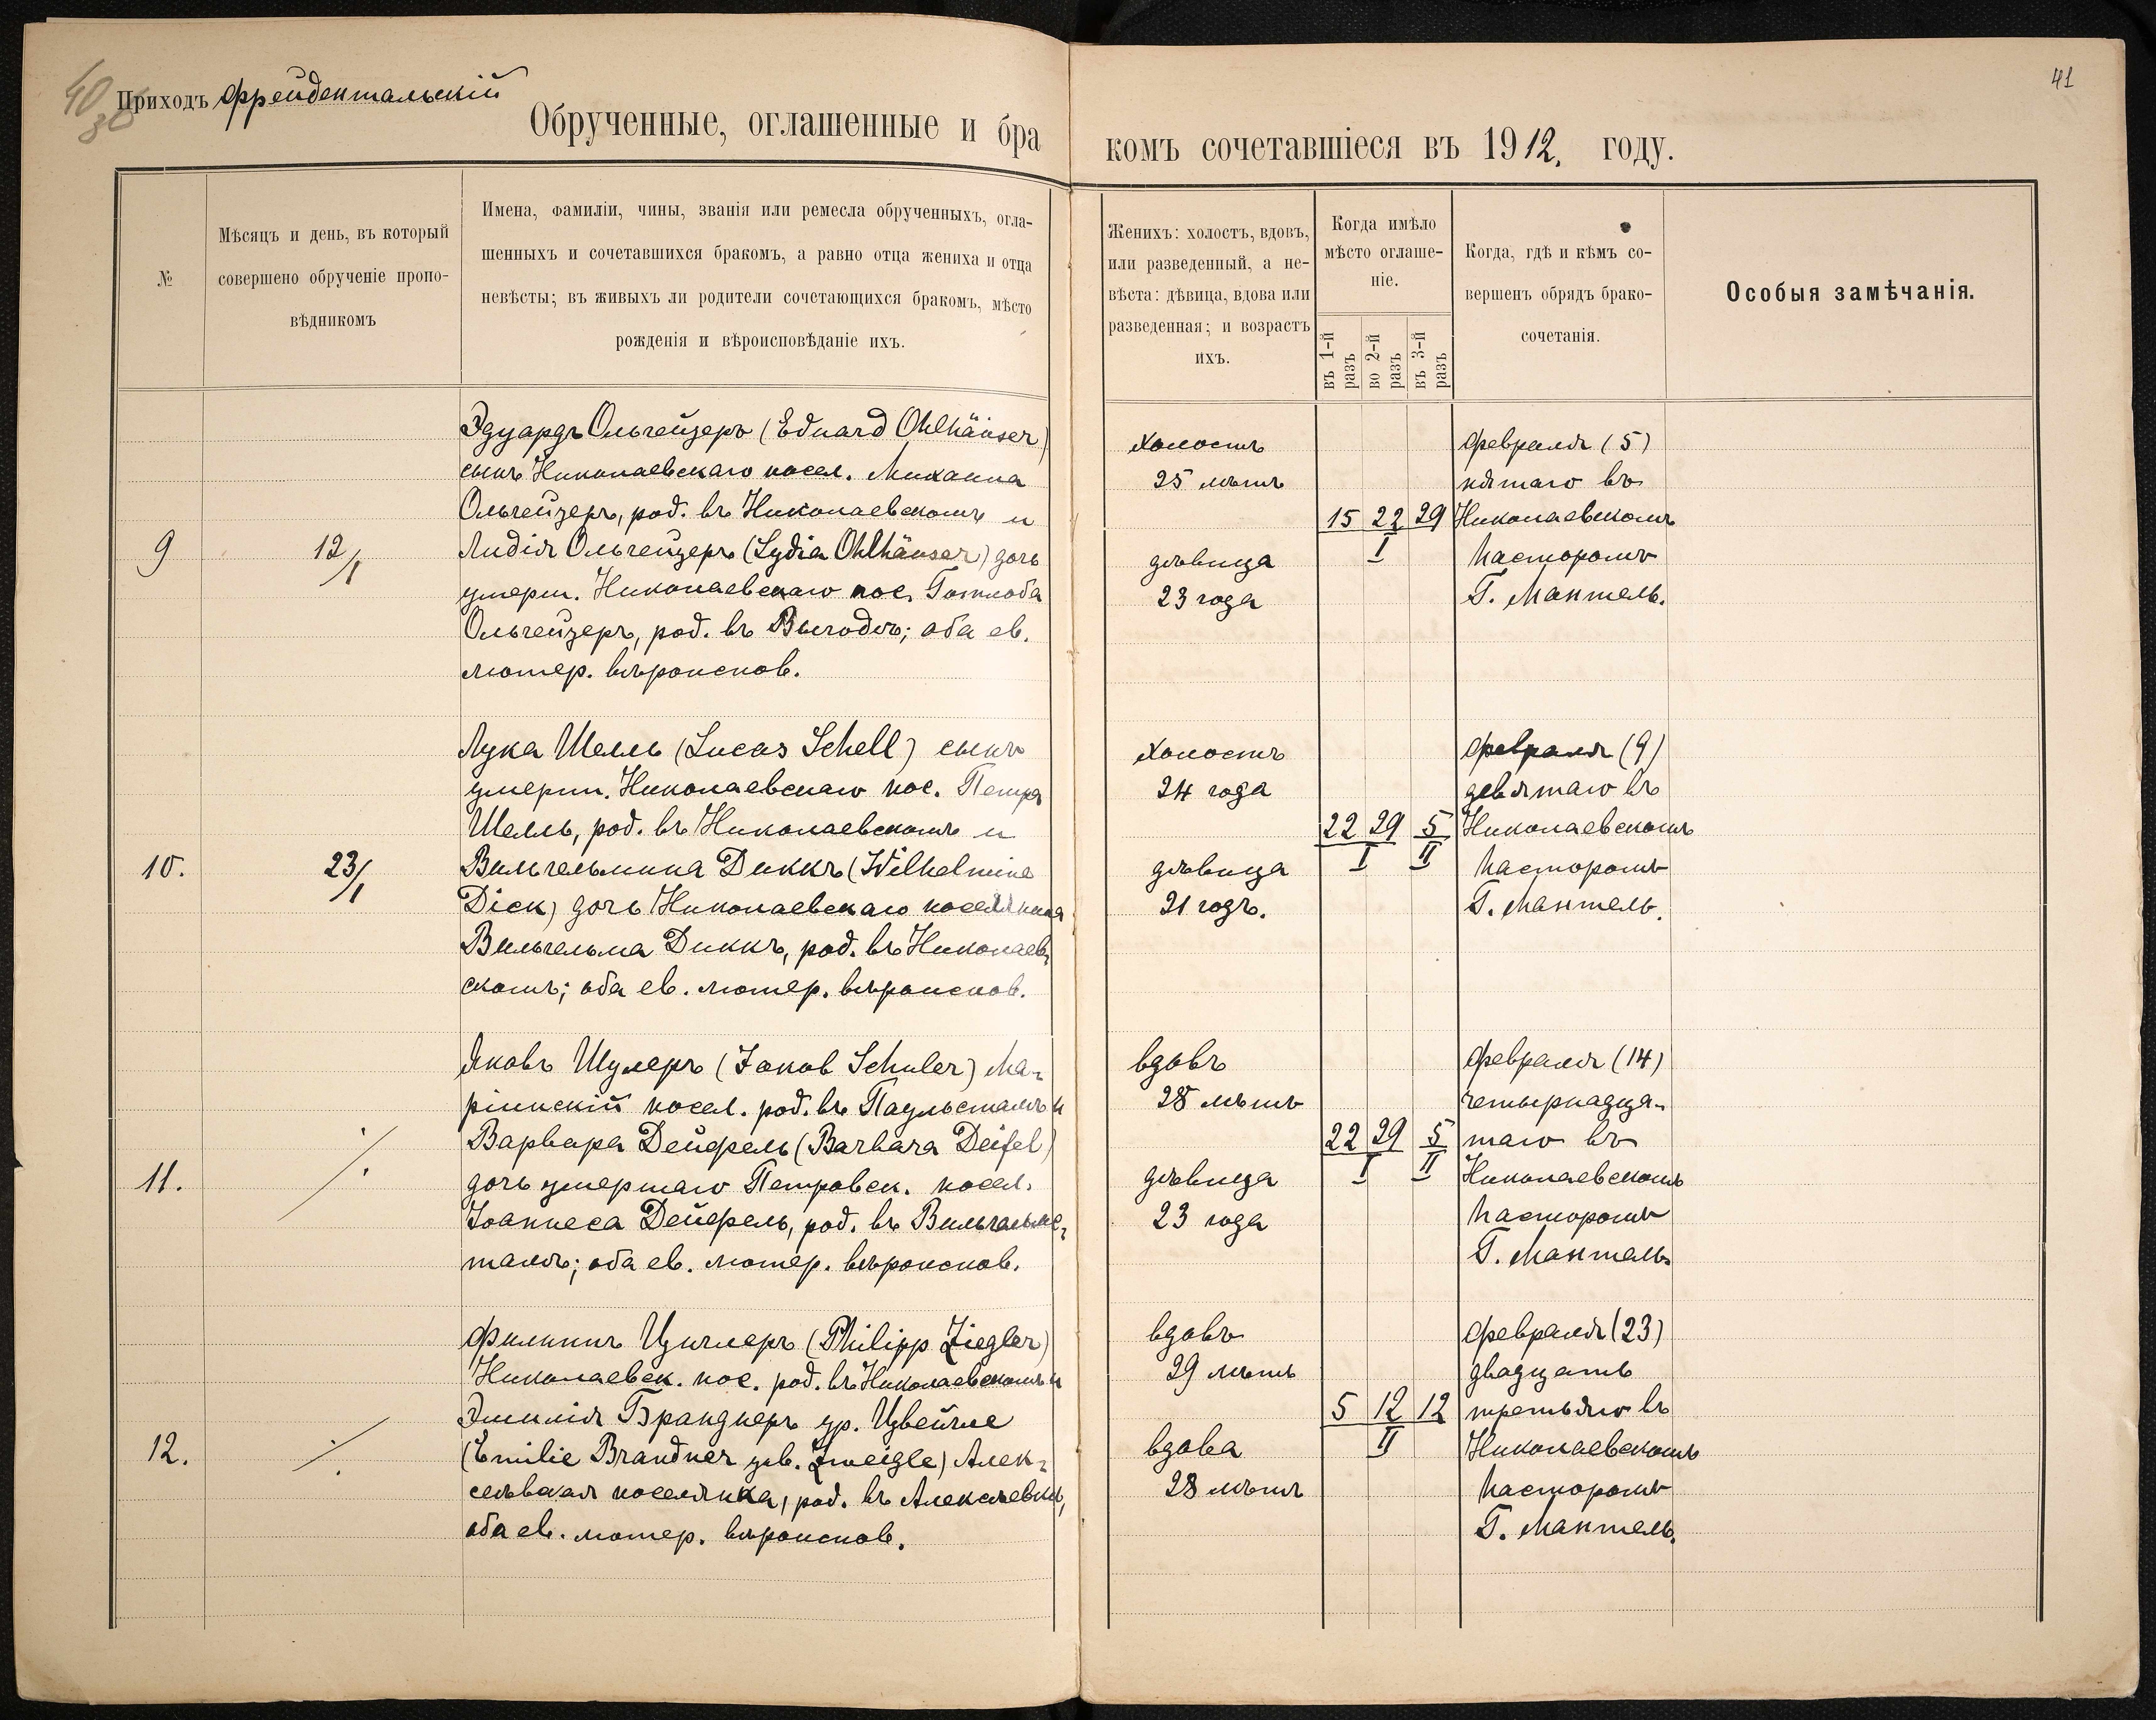 40
36
Приходъ Фрейдентальскій
Обрученные, оглашенные и бра
№
Мѣсяцъ и день, въ который
совершено обрученіе пропо-
вѣдникомъ
Имена, фамиліи, чины, званія или ремесла обрученныхъ, огла-
шенныхъ и сочетавшихся бракомъ, а равно отца жениха и отца
невѣсты; въ живыхъ ли родители сочетающихся бракомъ, мѣсто
рожденія и вѣроисповѣданіе ихъ.
Эдуардъ Ольгейзеръ (Eduard Ohlhäuser)
сынъ Николаевскаго посел. Михаила
Ольгейзеръ, род. въ Николаевскомъ и
9 12/1 Лидія Ольгейзеръ (Lydia Ohlhäuser) дочь
умерш. Николаевскаго пос. Готлоба
Ольгейзеръ, род. въ Выгодѣ; оба ев.
лютер. вѣроиспов.
Лука Шелль (Lucas Schell) сынъ
умерш. Николаевскаго пос. Петра
Шелль, род. въ Николаевскомъ и
10. 23/1 Вильгельмина Диккъ (Wilhelmine
Dick) дочь Николаевскаго поселянина
Вильгельма Диккъ, род. въ Николаев-
скомъ; оба ев. лютер. вѣроиспов.
Яковъ Шулеръ (Jakob Schuler) Ма-
ріинскій посел. род. въ Паульсталѣ и
Варвара Дейфель (Barbara Deifel)
11. ·/. дочь умершаго Петровск. посел.
Іоаннеса Дейфель, род. въ Вильгельмс-
талѣ; оба ев. лютер. вѣроиспов.
Филиппъ Циглеръ (Philipp Ziegler)
Николаевск. пос. род. въ Николаевскомъ и
Эмилія Бранднеръ ур. Цвейгле
12. ·/. (Emilie Brandner geb. Zweigle) Алек-
сѣевская поселянка, род. въ Алексѣевкѣ,
оба ев. лютер. вѣроиспов.
41
комъ сочетавшіеся въ 1912. году.
Женихъ: холостъ, вдовъ,
или разведенный, а не-
вѣста: дѣвица, вдова или
разведенная; и возрастъ
ихъ.
Когда имѣло
мѣсто оглаше-
ніе.
въ 1-й разъ
во 2-й разъ
въ 3-й разъ
Когда, гдѣ и кѣмъ со-
вершенъ обрядъ брако-
сочетанія.
Особыя замѣчанія.
холостъ Февраля (5)
25 лѣтъ пятаго въ
15 22 29 Николаевскомъ
дѣвица I пасторомъ
23 года Г. Мантель.
холостъ Февраля (9)
24 года девятаго въ
22 29 5 Николаевскомъ
дѣвица I II пасторомъ
21 годъ. Г. Мантель.
вдовъ Февраля (14)
28 лѣтъ четырнадца-
22 29 5 таго въ
дѣвица I II Николаевскомъ
23 года пасторомъ
Г. Мантель.
вдовъ Февраля (23)
29 лѣтъ двадцать
5 12 12 третьяго въ
вдова II Николаевскомъ
28 лѣтъ пасторомъ
Г. Мантель.